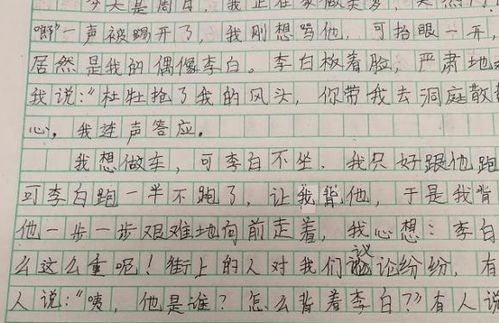 今天是周日，我正在家做美梦，突然门
唧”一声被踢开了，我刚想骂他，可抬眼一开，
居然是我的偶像李白。李白板着脸，严肃地对
我说：“杜牡抢了我的风头，你带我去洞庭散散
心。我连声答应。
我想做车，可李白不坐，我只好跟他跑
可李白跑一半不跑了，让我背他，于是我背
他一步一步艰难地向前走着，我心想：李白
么这么重呢！街上的人对我们议论纷纷，有
人说：“咦，他是谁？怎么背着李白？”有人说